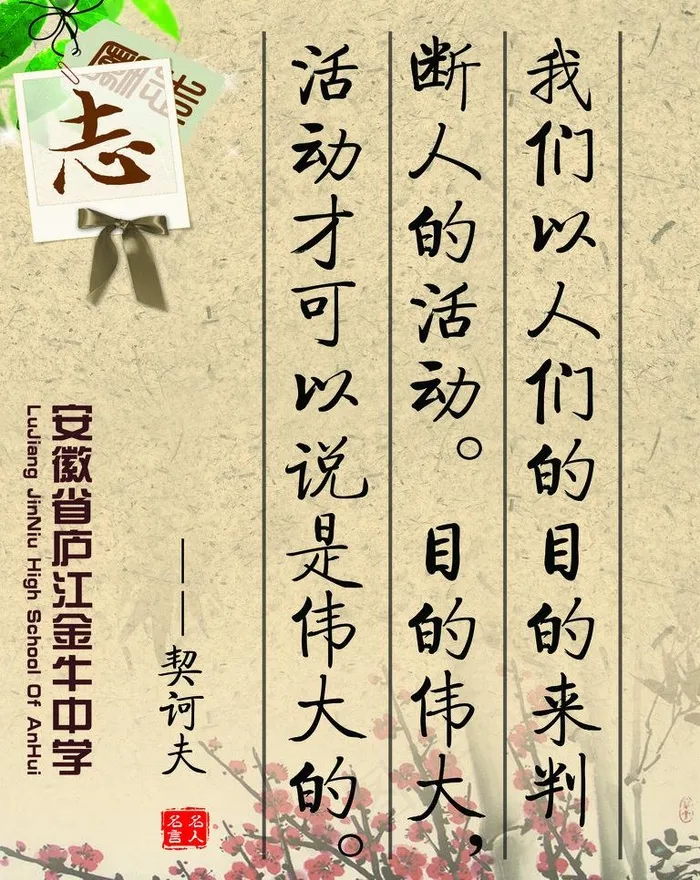 我们以人们的目的来判
断人的活动。 目的伟大，
活动才可以说是伟大的。
——契诃夫
名人
名言
志
安徽省庐江金牛中学
LuJiang JinNiu High School Of AnHui